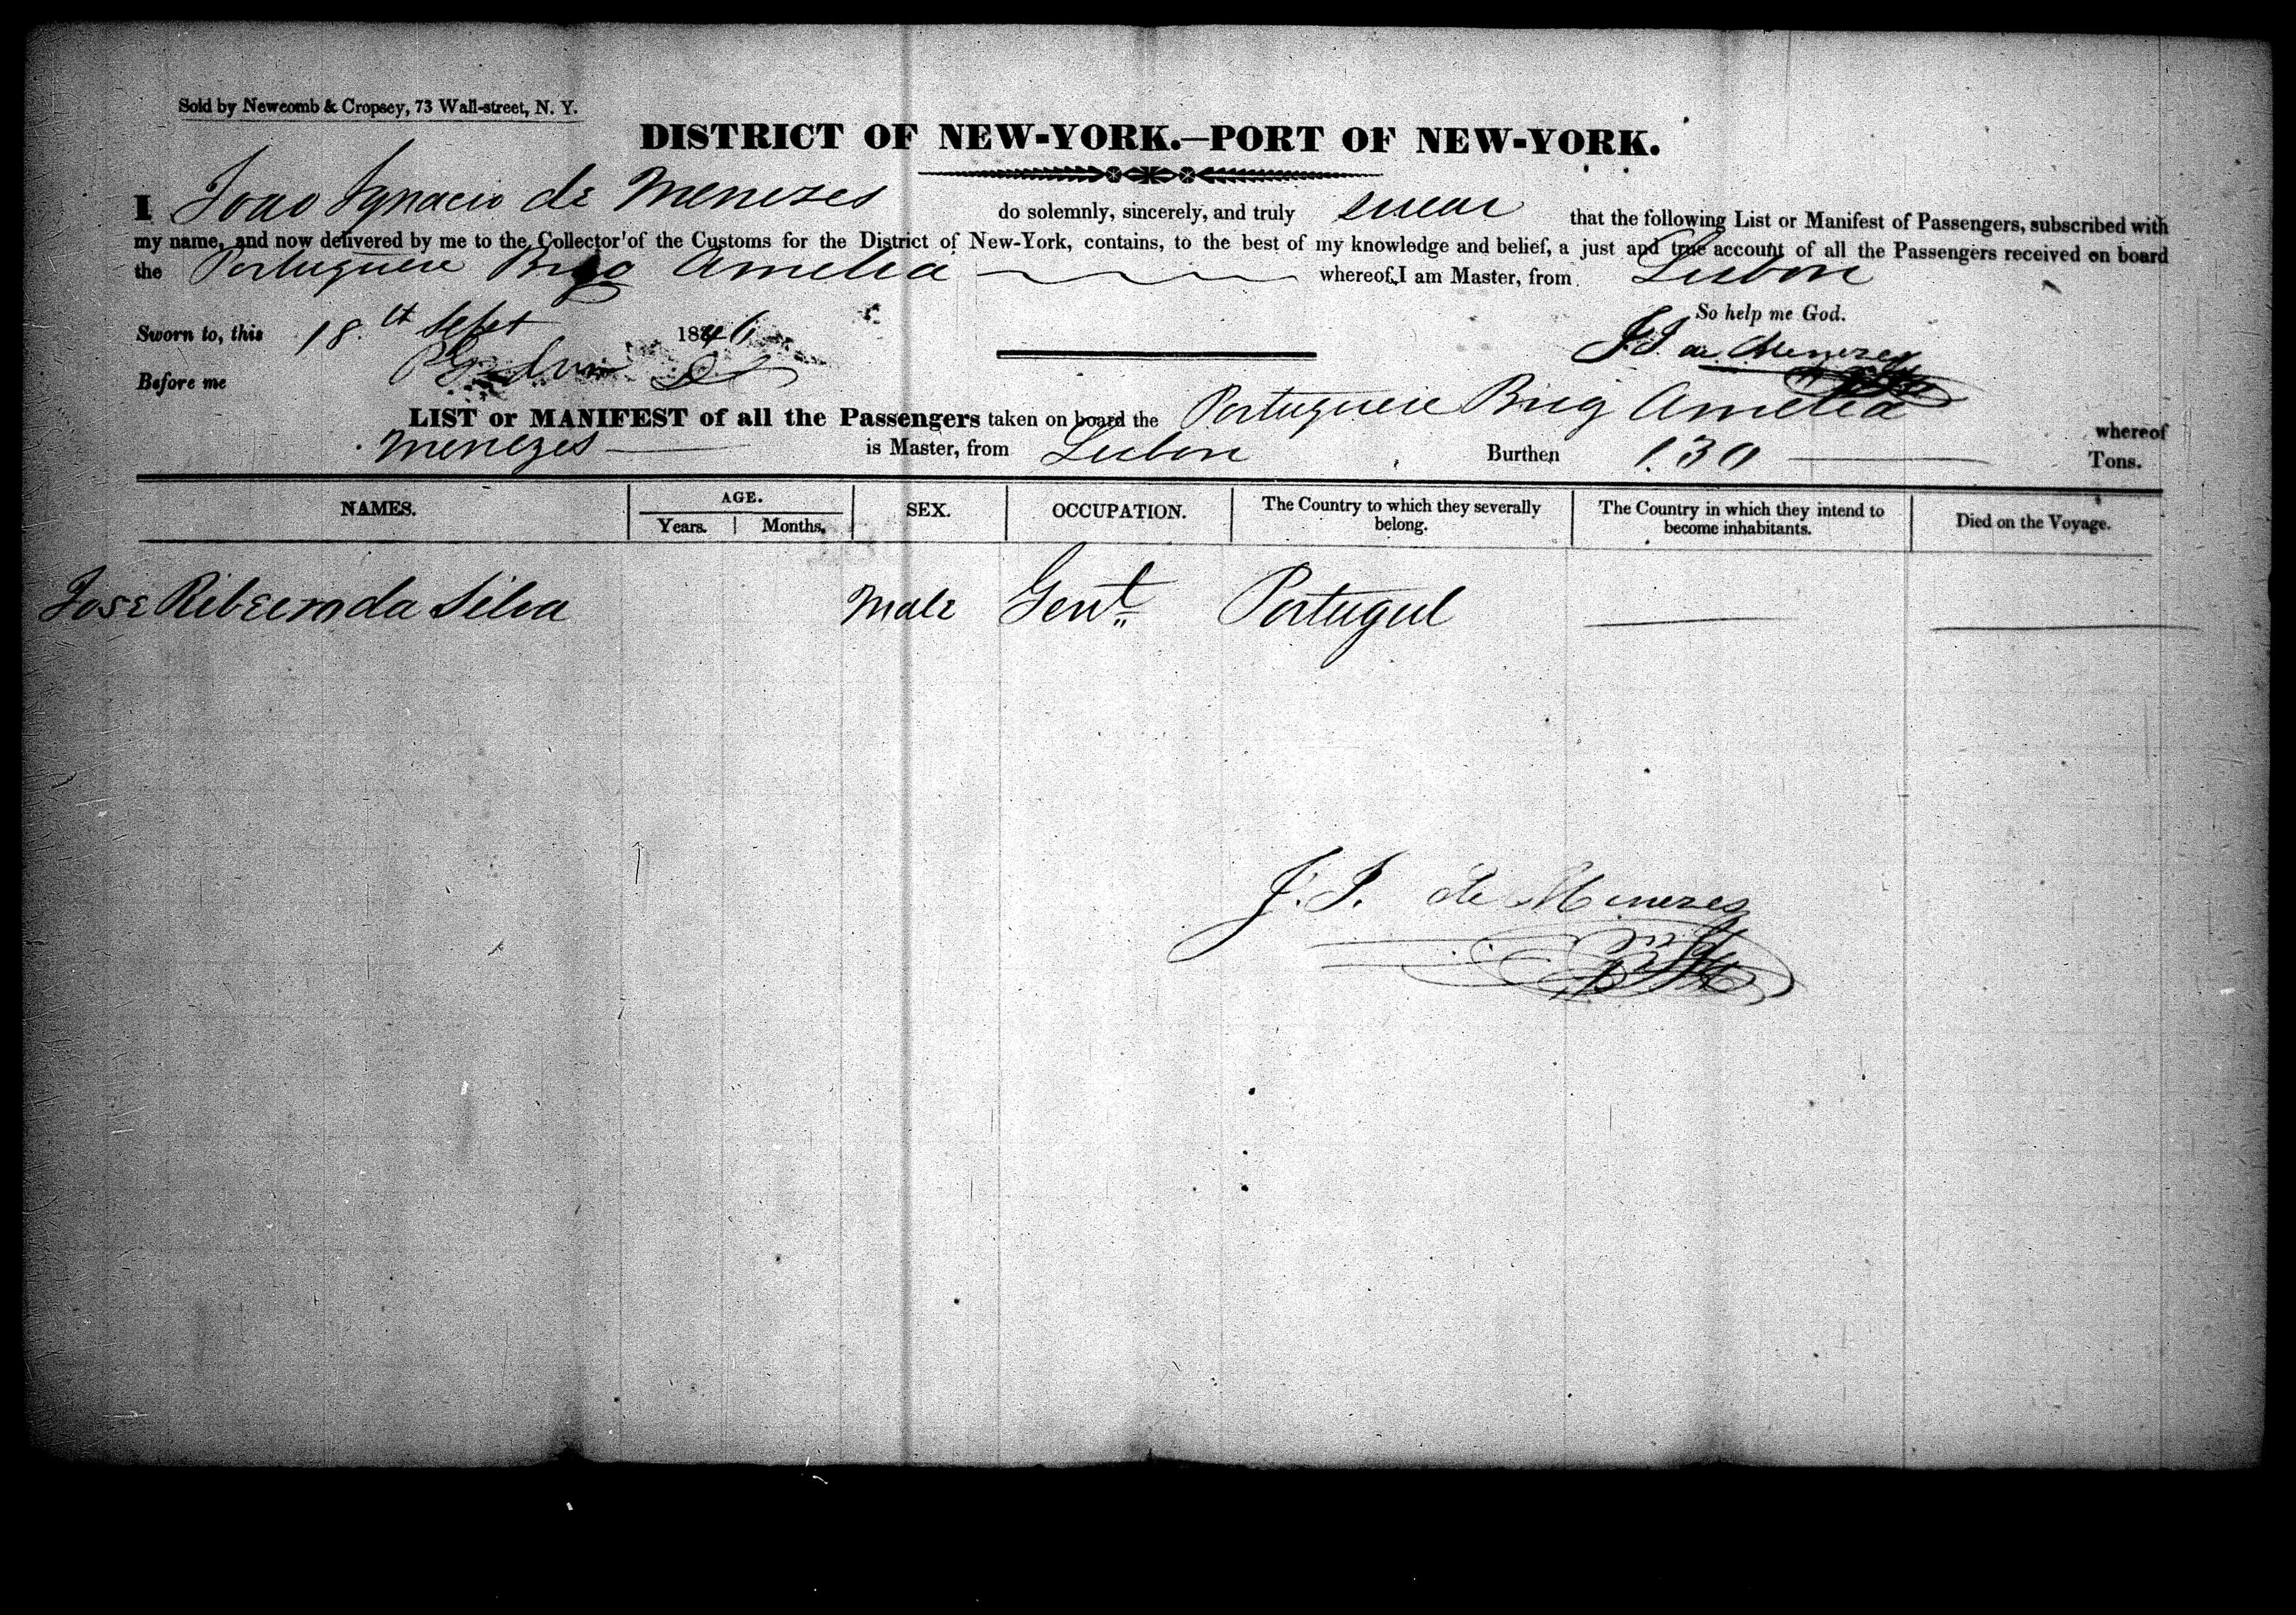 Sold by Newcomb & Cropsey, 73 Wall-street, N. Y.
DISTRICT OF NEW-YORK.—PORT OF NEW-YORK.
I Joao Ignacio de Menezes do solemnly, sincerely, and truly swear that the following List or Manifest of Passengers, subscribed with
my name, and now delivered by me to the Collector of the Customs for the District of New-York, contains, to the best of my knowledge and belief, a just and true account of all the Passengers received on board
the Portuguese Brig Amelia whereof I am Master, from Lisbon
So help me God.
Sworn to, this 18.th Sept 1846
J. I. de Menezes
Before me
LIST or MANIFEST of all the Passengers taken on board the Portuguese Brig Amelia whereof
Menezes is Master, from Lisbon Burthen 130 Tons.
NAMES. AGE. SEX. OCCUPATION. The Country to which they severally belong. The Country in which they intend to become inhabitants. Died on the Voyage.
Years. Months.
Jose Ribeiro da Silva Male Gent. Portugal
J. I. de Menezes